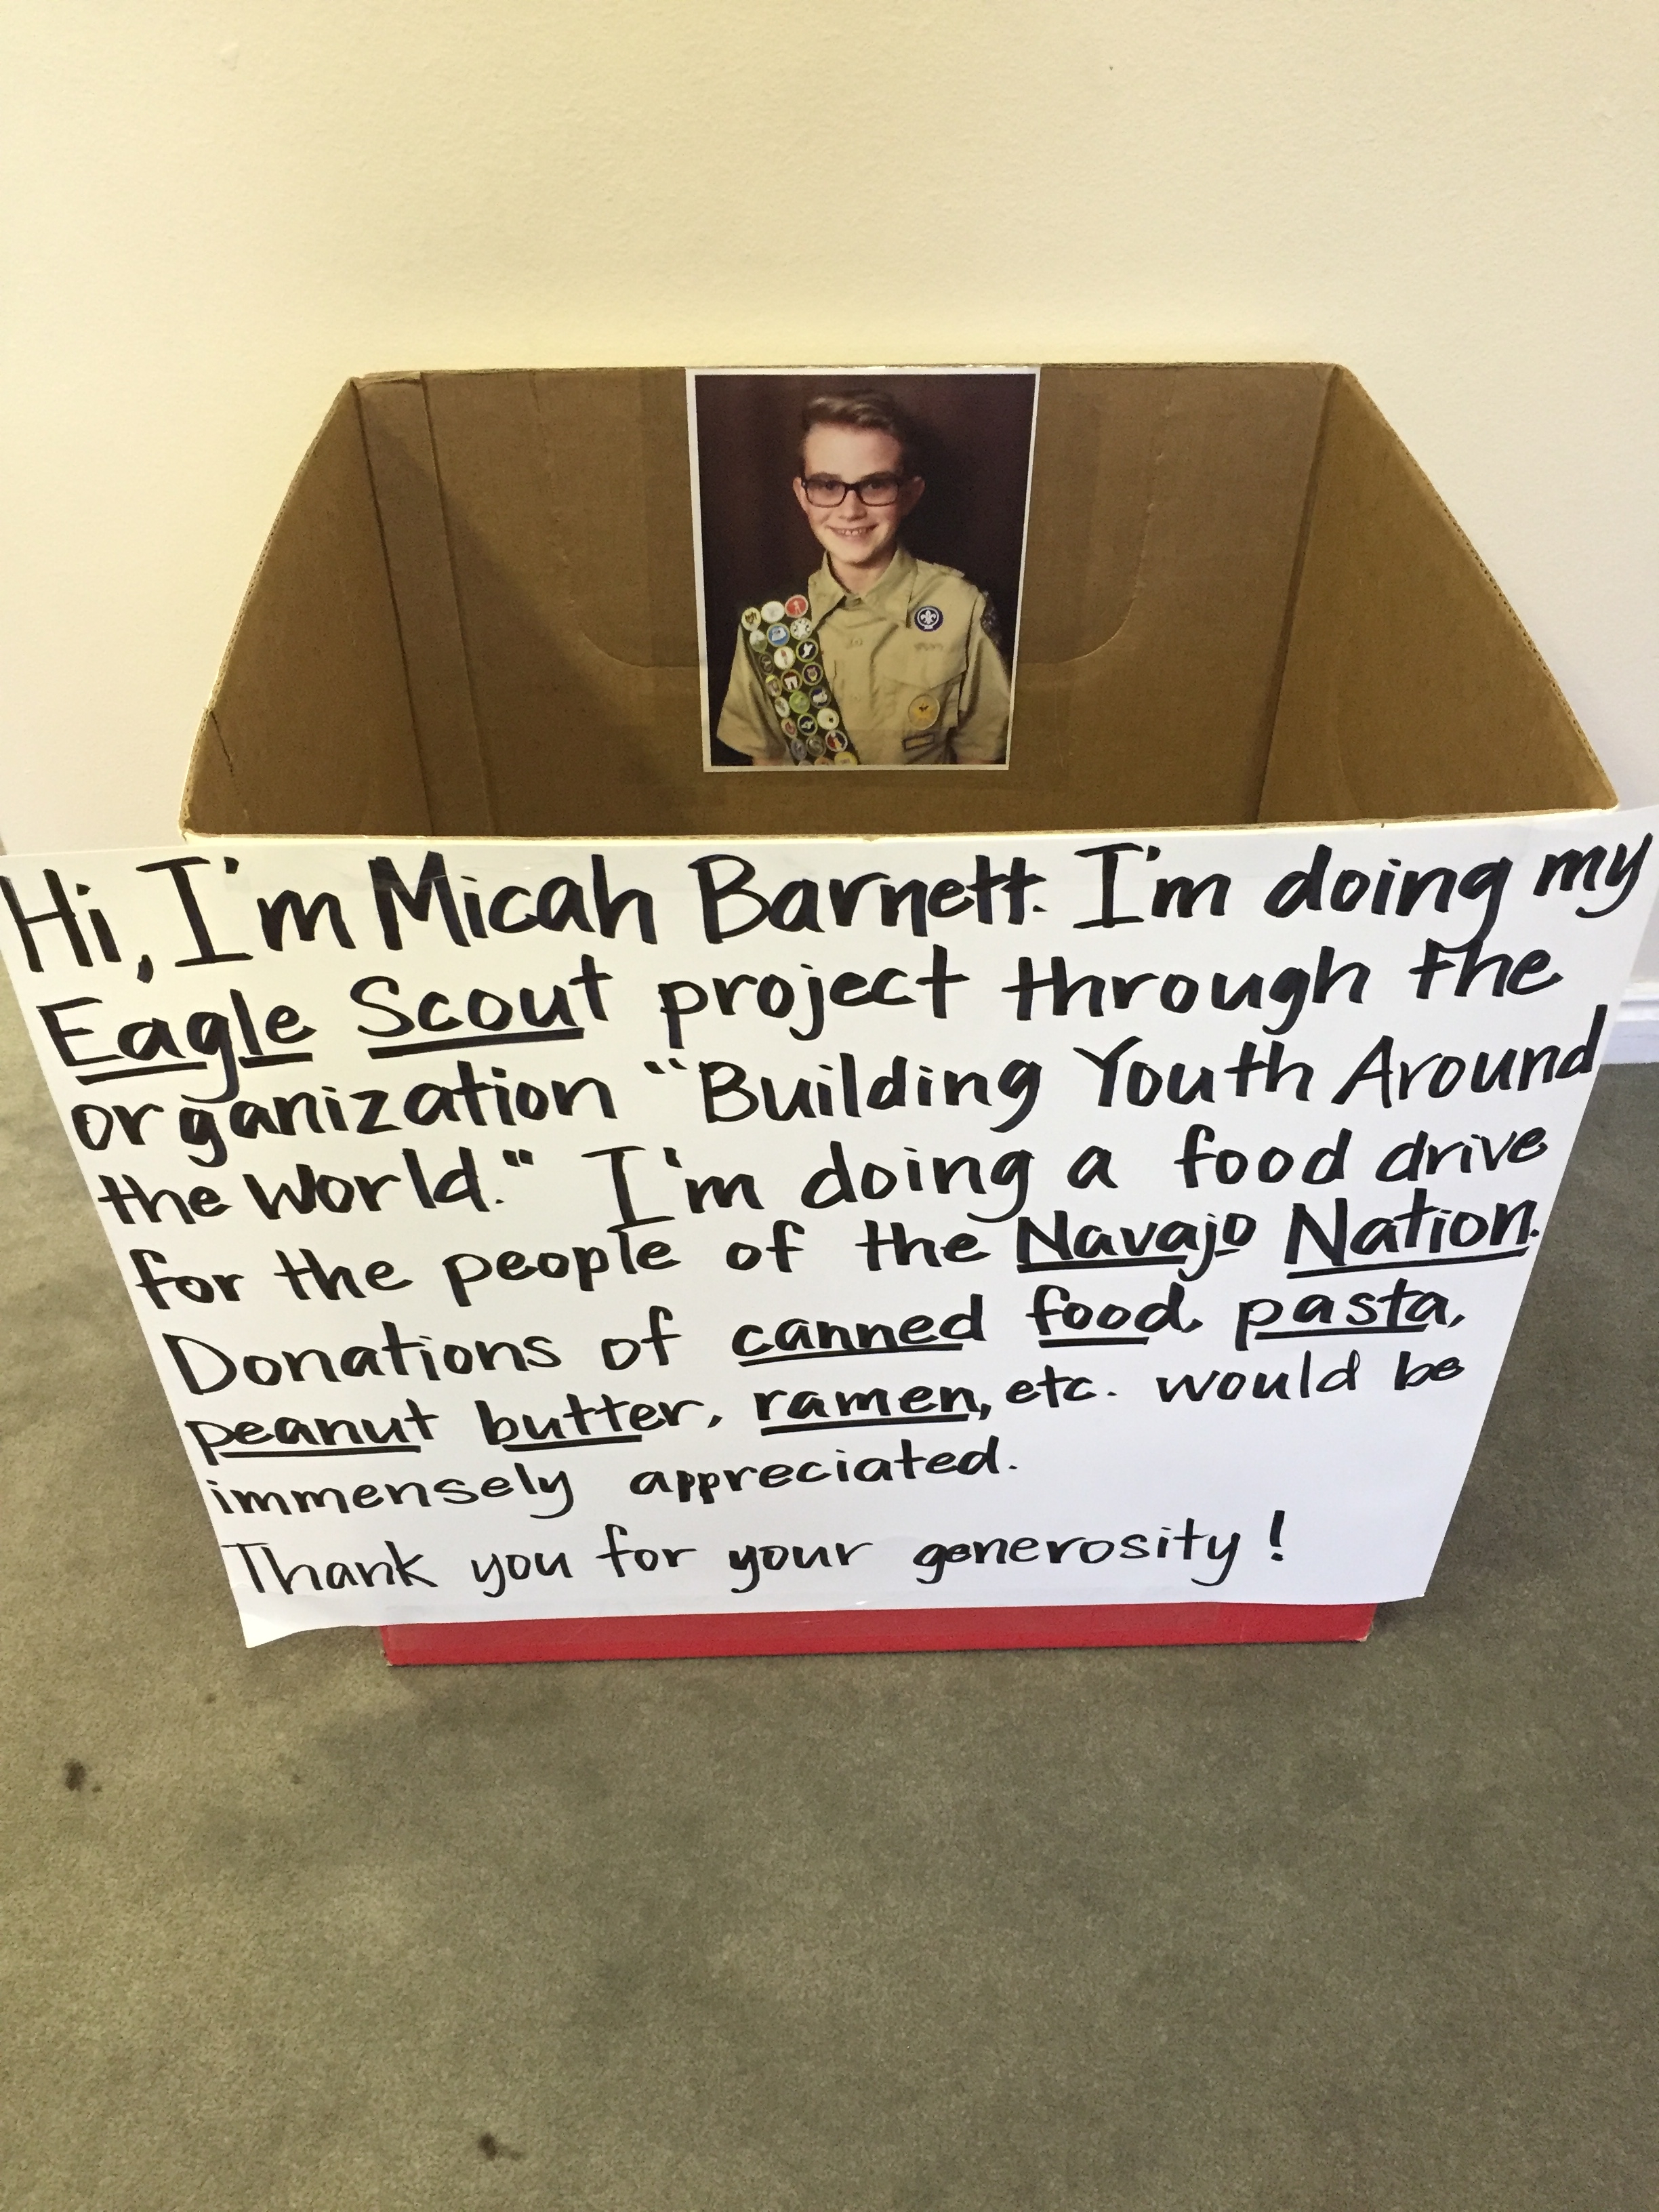 Hi, I'm Micah Barnett. I'm doing my
Eagle Scout project through the
organization "Building Youth Around
the World." I'm doing a food drive
for the people of the Navajo Nation.
Donations of canned food, pasta,
peanut butter, ramen, etc. would be
immensely appreciated.
Thank you for your generosity!